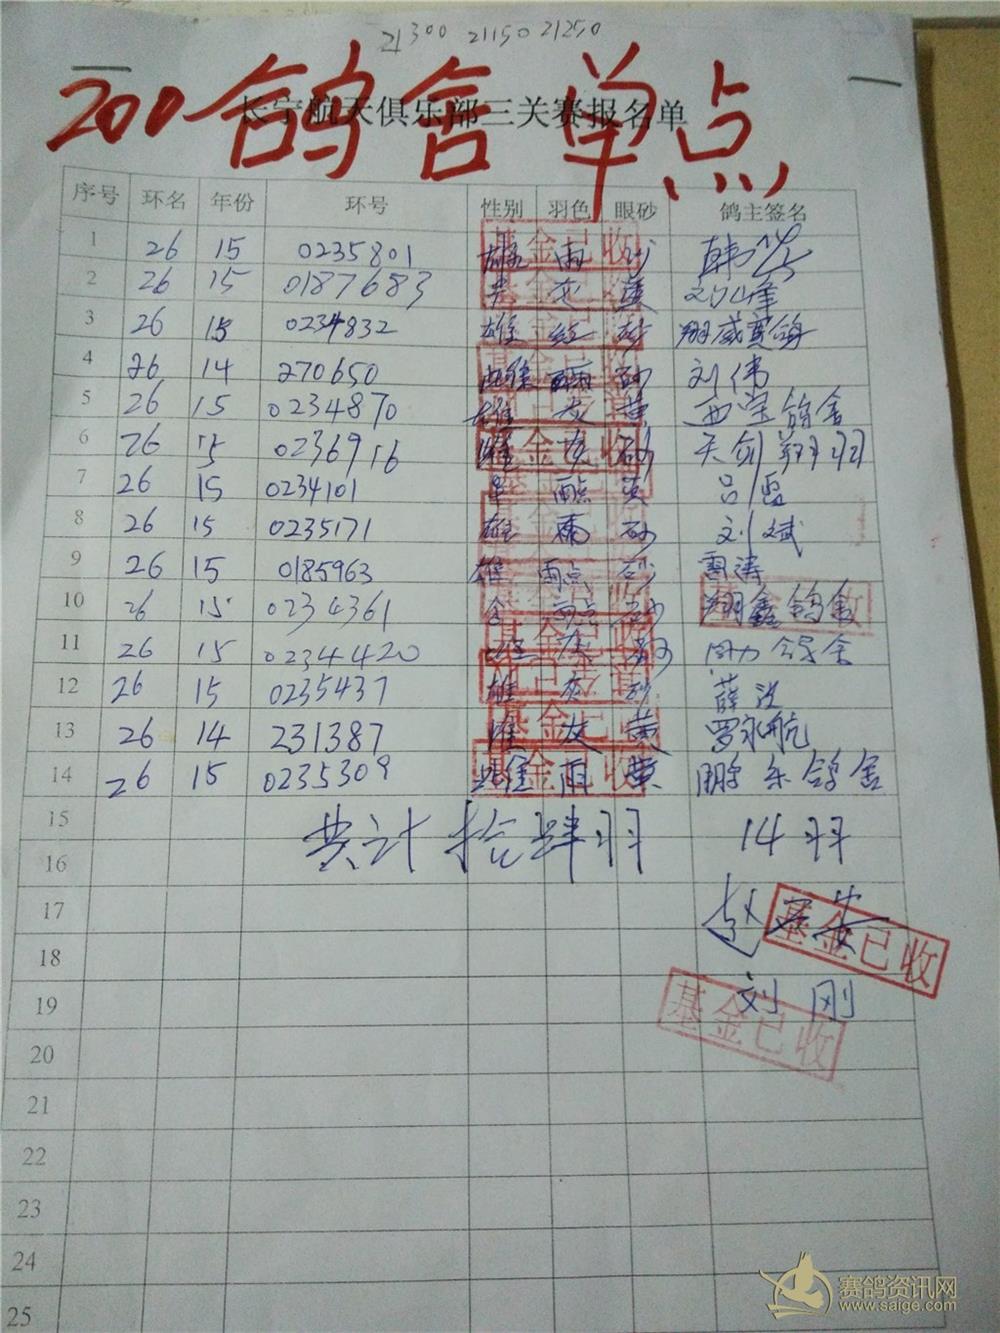 21300 21150 21250
200 鸽舍单点
长宁航天俱乐部三关赛报名单
序号 环名 年份 环号 性别 羽色 眼砂 鸽主签名
1 26 15 0235801 雄 雨 沙 韩
2 26 15 0187683 灰 黄
3 26 15 0234832 雄 红 砂 翔威赛鸽
4 26 14 270650 雌 雨 砂 刘伟
5 26 15 0234870 雄 灰 黄 西宝鸽舍
6 26 15 0236916 雄 灰 砂 天剑翔羽
7 26 15 0234101 雨点 黄 吕
8 26 15 0235171 雄 雨 砂 刘斌
9 26 15 0185963 雄 雨点 砂 雷涛
10 26 15 0234361 雨点 砂 翔鑫鸽舍
11 26 15 0234420 灰 鸽舍
12 26 15 0235437 雄 灰 砂 薛
13 26 14 231387 雄 灰 黄 罗永航
14 26 15 0235309 雨 黄 鹏东鸽舍
15
共计拾肆羽 14羽
16
17 赵
基金已收
18
19 刘刚
基金已收
20
21
22
23
24
25
赛鸽资讯网
www.saige.com